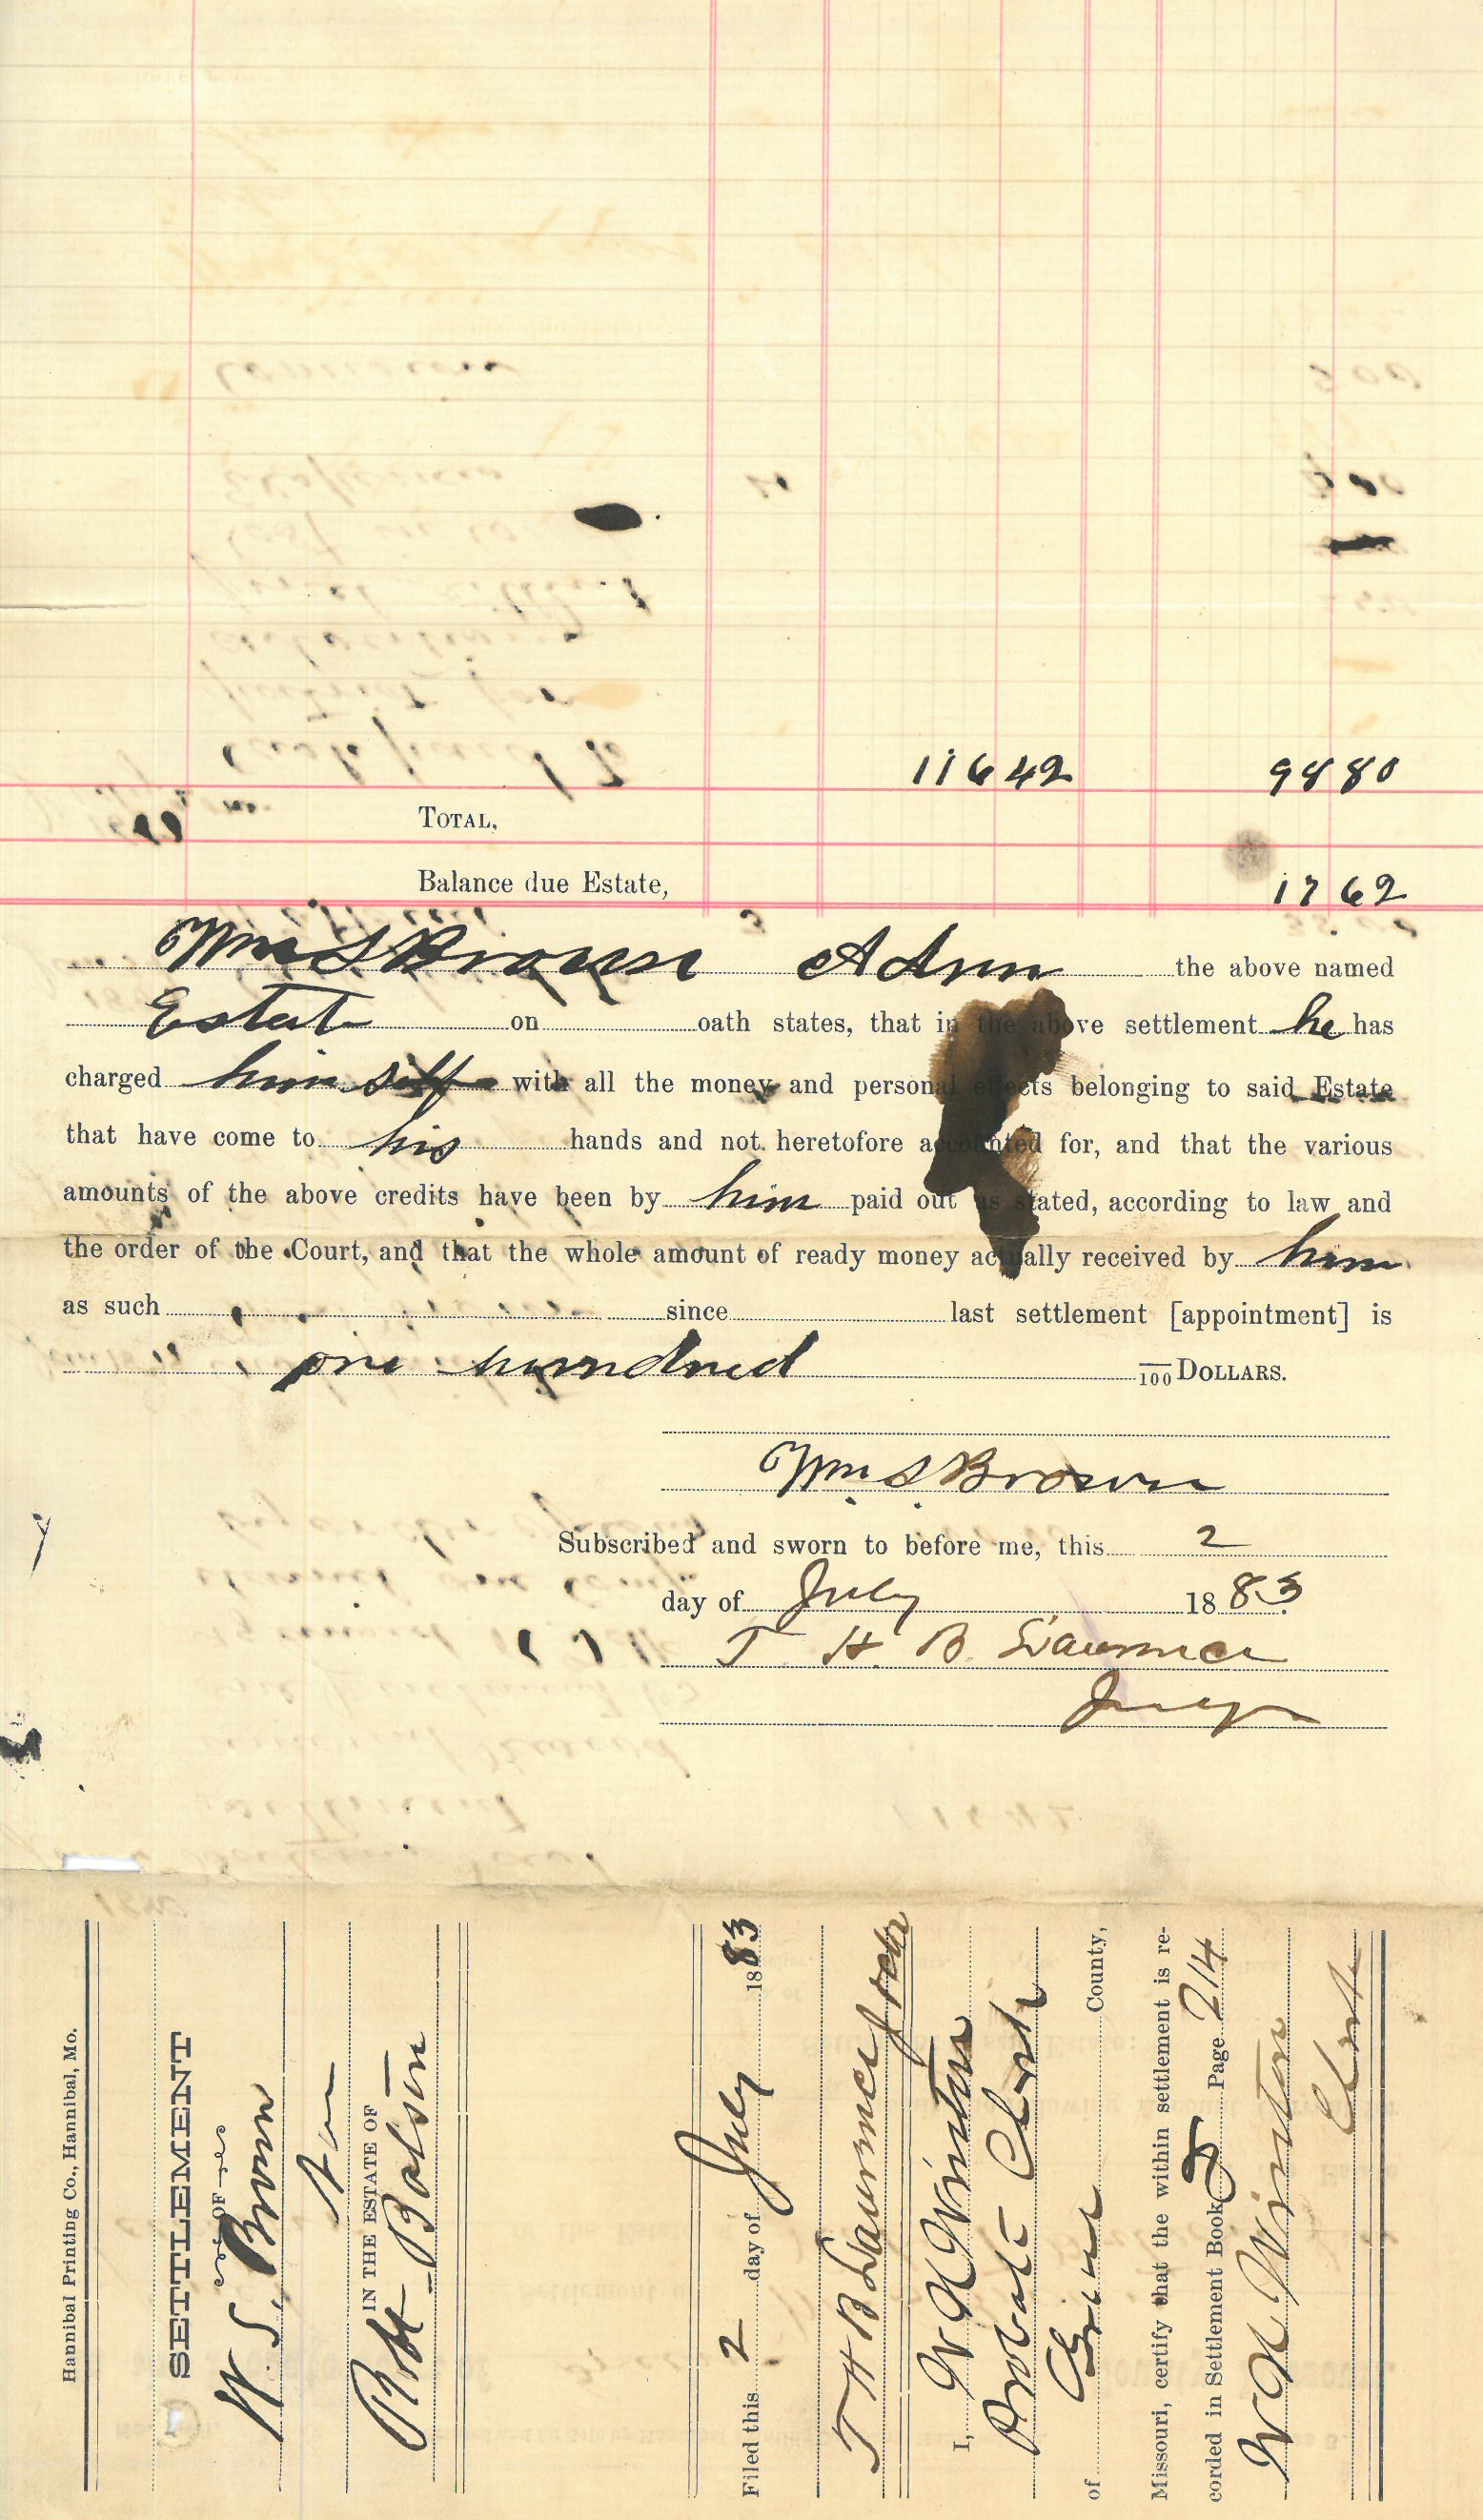 116 42 98 80
TOTAL,
Balance due Estate, 17 62
Wm S Brown Adm the above named
Estate on oath states, that in the above settlement he has
charged him self with all the money and personal effects belonging to said Estate
that have come to his hands and not heretofore accounted for, and that the various
amounts of the above credits have been by him paid out as stated, according to law and
the order of the Court, and that the whole amount of ready money actually received by him
as such since last settlement [appointment] is
one hundred /100 DOLLARS.
Wm S Brown
Subscribed and sworn to before me, this 2
day of July 1883
T. H. B. Lawrence
Judge
Hannibal Printing Co., Hannibal, Mo.
SETTLEMENT
OF
W. S. Brown
IN THE ESTATE OF
Robt
Filed this 2 day of July 1883
T H B Lawrence Judge
I, W N Winton
Probate Clerk
of County,
Missouri, certify that the within settlement is re-
corded in Settlement Book Page 214
W N Winton
Clerk